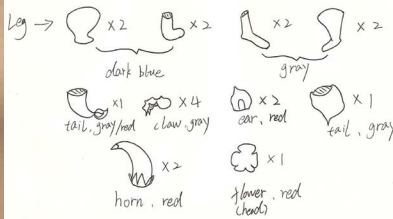 Leg → x2 x2 x2 x2
dark blue gray
x1 x4 x2 x1
tail, gray/red claw, gray ear, red tail, gray
x2 x1
horn, red flower, red
(head)